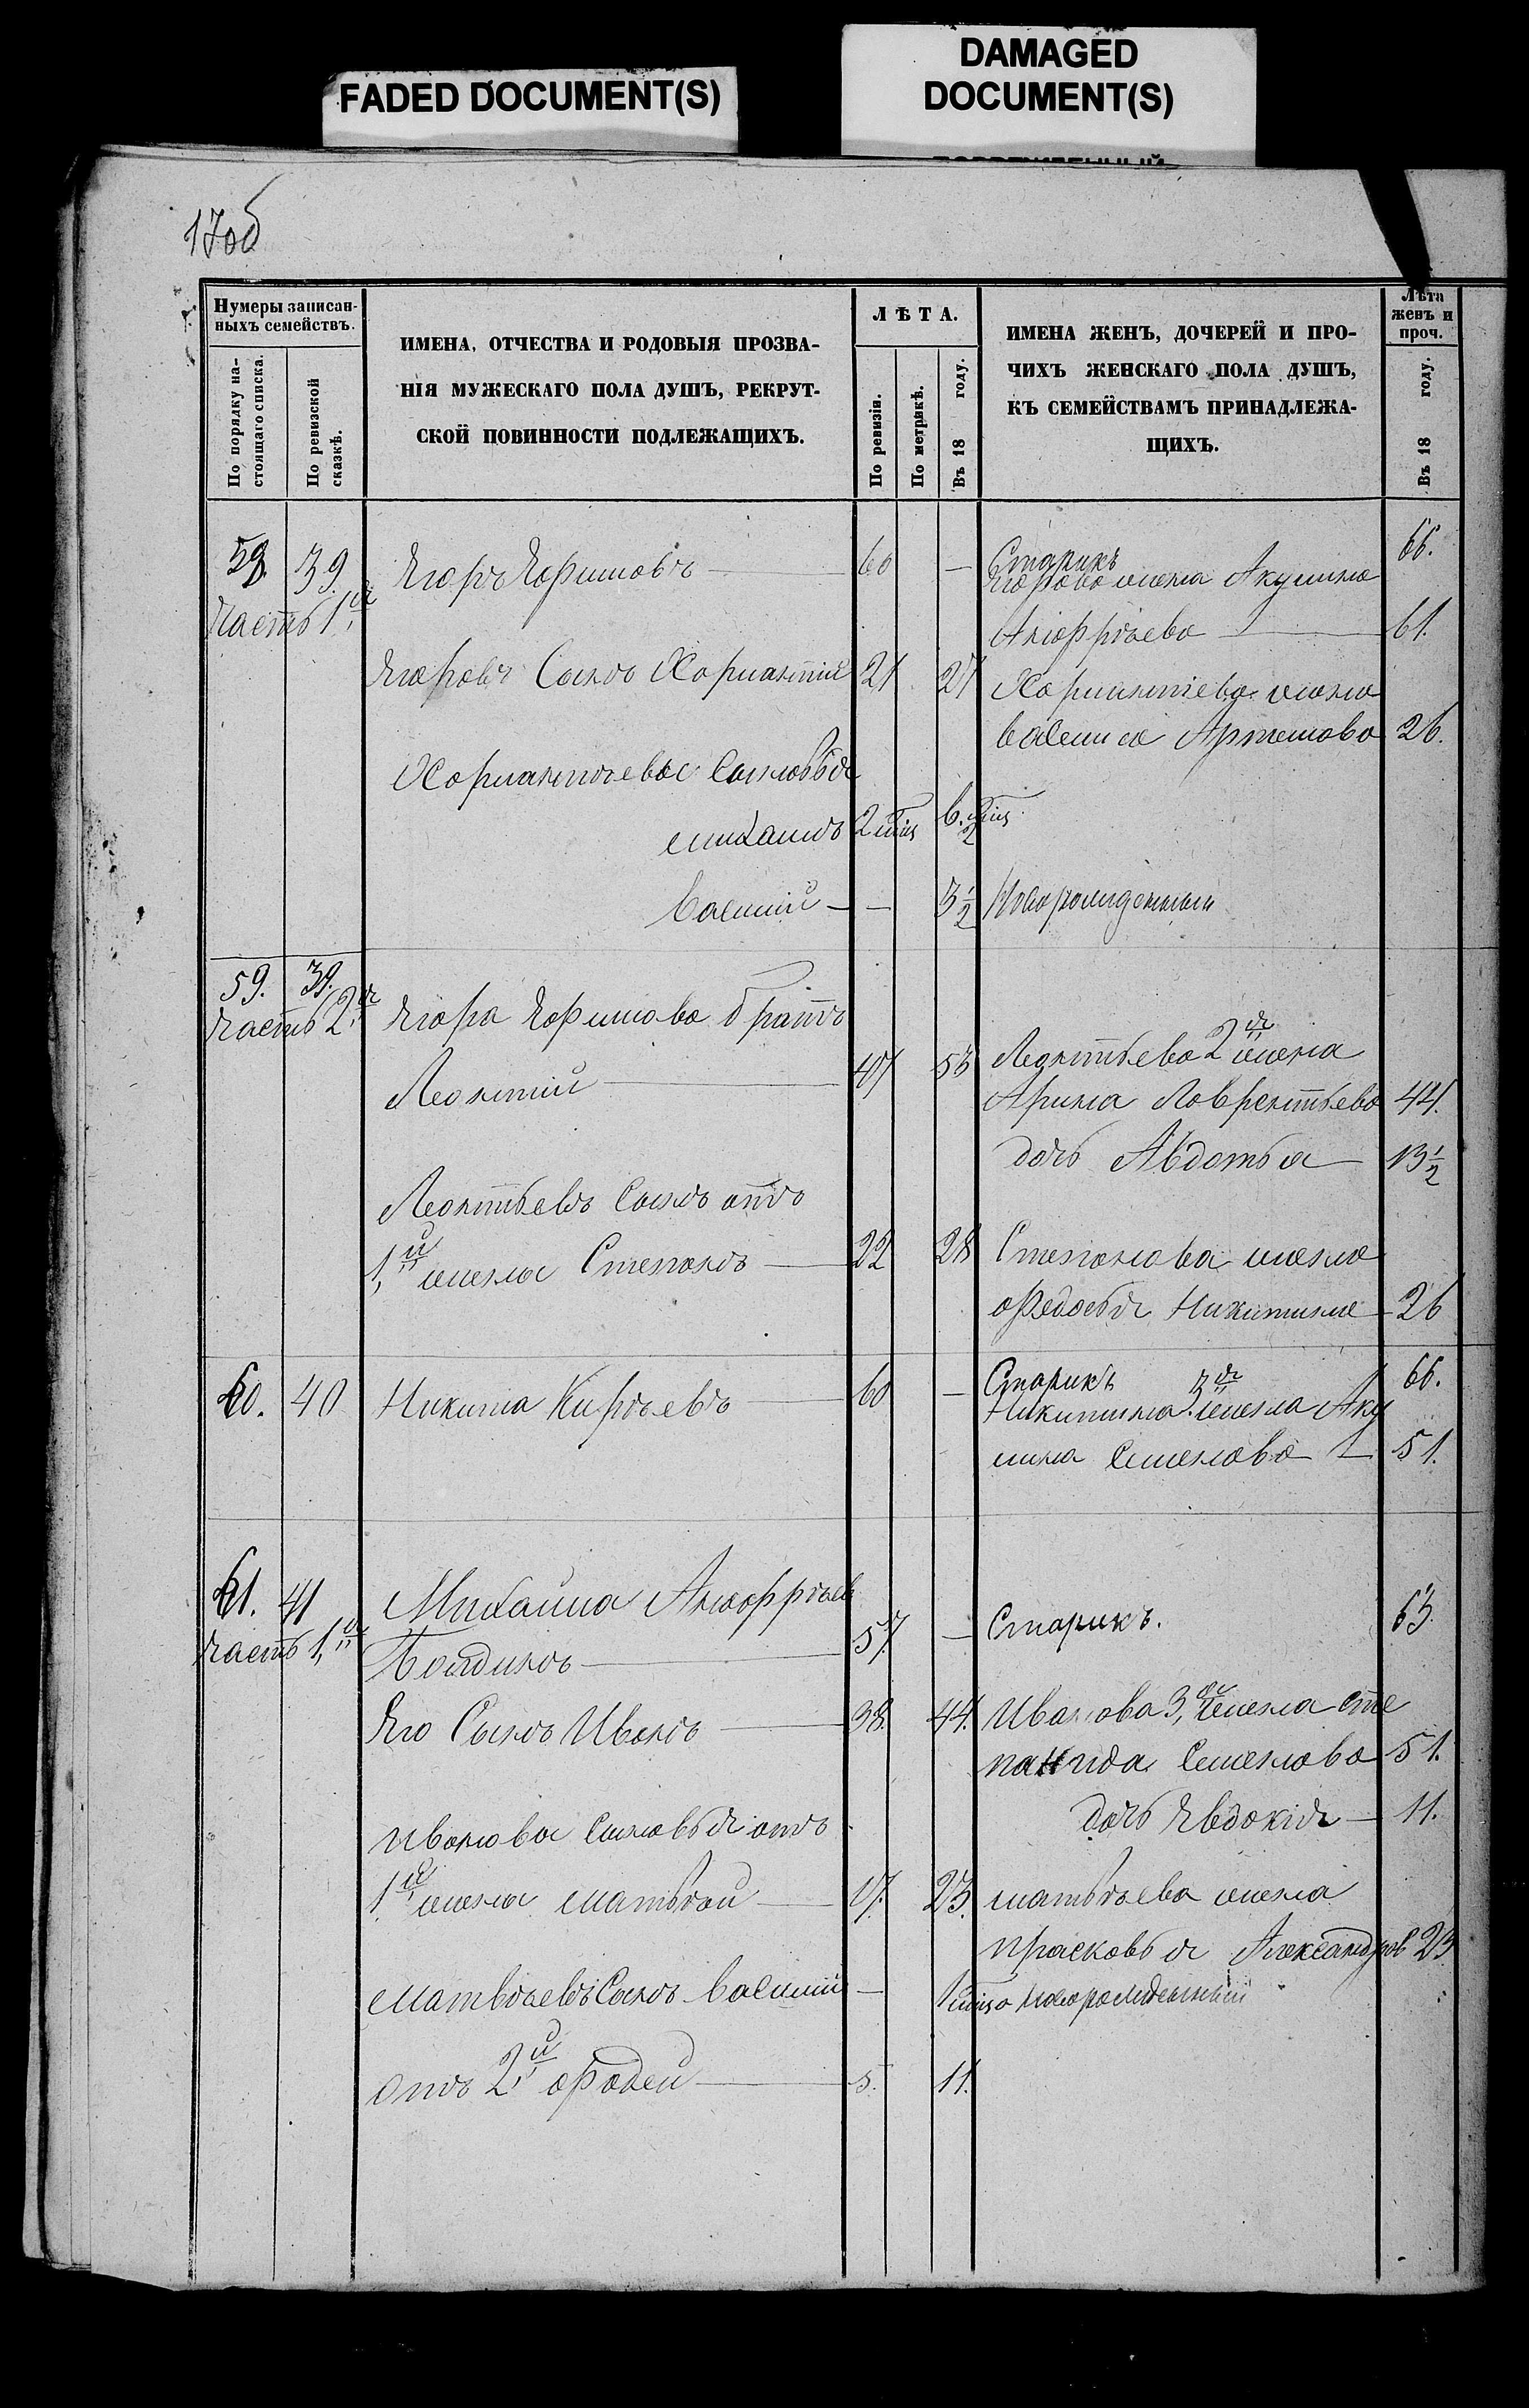 FADED DOCUMENT(S)
DAMAGED
DOCUMENT(S)
17об
Нумеры записан-
ныхъ семействъ.
По порядку на-
стоящаго списка.
По ревизской
сказкѣ.
ИМЕНА, ОТЧЕСТВА И РОДОВЫЯ ПРОЗВА-
НІЯ МУЖЕСКАГО ПОЛА ДУШЪ, РЕКРУТ-
СКОЙ ПОВИННОСТИ ПОДЛЕЖАЩИХЪ.
ЛѢТА.
По ревизіи.
По метрикѣ.
Въ 18 году.
ИМЕНА ЖЕНЪ, ДОЧЕРЕЙ И ПРО-
ЧИХЪ ЖЕНСКАГО ПОЛА ДУШЪ,
КЪ СЕМЕЙСТВАМЪ ПРИНАДЛЕЖА-
ЩИХЪ.
Лѣта
женъ и
проч.
Въ 18 году.
58. 39. Ягоръ Яфимовъ 60 — Старикъ 66.
Часть 1я Ягорова жена Акулина
Алюффѣева 61.
Ягоровъ Сынъ Харлантій 21 27 Харлантіева жена
василиса Артемова 26.
Харлантьевы Сыновья
михаилъ 2 6.
василий — 3½ Новорожденный
59. 39. Ягора Яфимова братъ
Часть 2я
Леонтий 47 53 Леонтьева 2я жена
Арина Лаврентьева 44.
дочь Авдотья 13½
Леонтьевъ Сынъ отъ
1й жены Степанъ 22 28 Степанова жена
Федосья Никитина 26
60. 40 Никита Кирѣевъ 60 — Старикъ 66.
Никитина 3я жена Аку
лина Семенова 51.
61. 41 Михаила Алюффѣев
Часть 1я Болдинъ 57. — Старикъ. 63.
Яго Сынъ Иванъ 38. 44. Иванова 3я жена сте
панида Семенова 51.
дочь Явдокія 11.
Ивановы Сыновья отъ
1й жены матвѣй 17. 23. матвѣева жена
прасковья Александров 23
матвѣевъ Сынъ василий — новорожденный
отъ 2й фадей 5. 11.